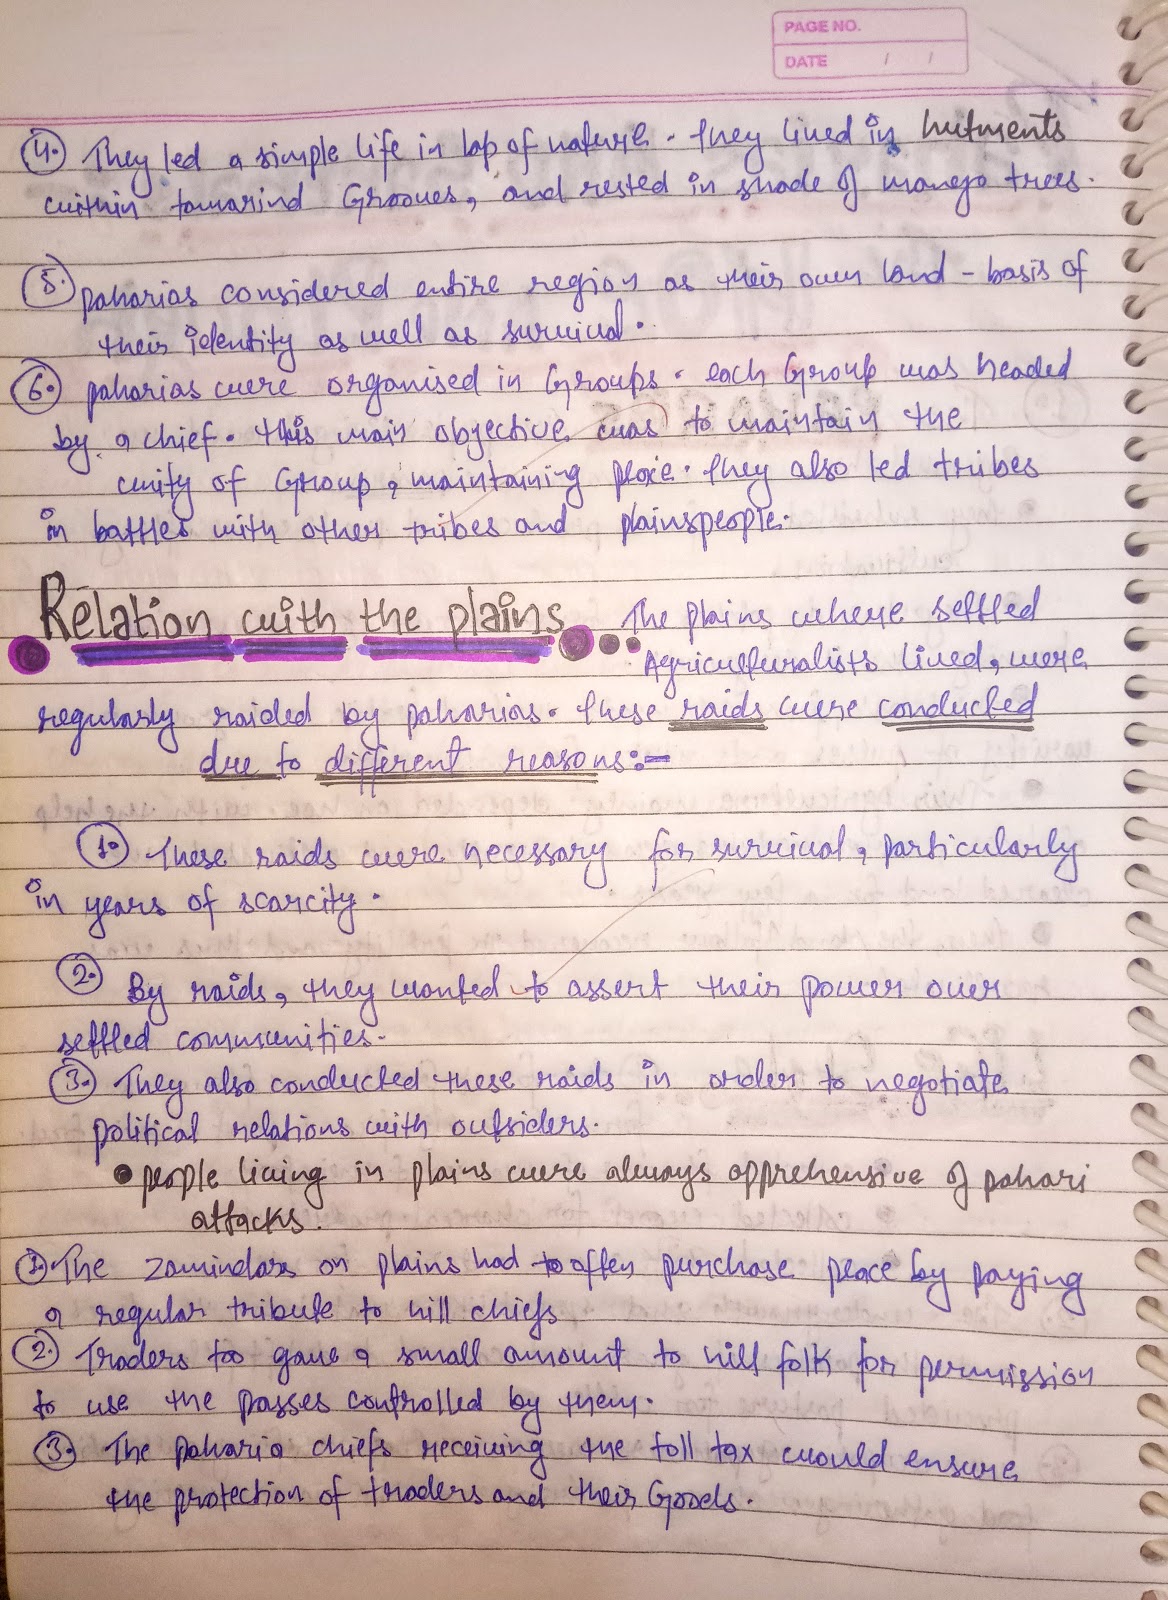 PAGE NO.
DATE / /
4. They led a simple life in lap of nature. They lived in hutments
within tamarind Grooves, and rested in shade of mango trees.
5. paharias considered entire region as their own land - basis of
their identity as well as survival.
6. paharias were organised in Groups. each Group was headed
by a chief. this main objective was to maintain the
unity of Group, maintaining peace. They also led tribes
in battles with other tribes and plainspeople.
Relation with the plains The plains where settled
Agriculturalists lived, were
regularly raided by paharias. These raids were conducted
due to different reasons:-
1. These raids were necessary for survival, particularly
in years of scarcity.
2. By raids, they wanted to assert their power over
settled communities.
3. They also conducted these raids in order to negotiate
political relations with outsiders.
• people living in plains were always apprehensive of pahari
attacks.
1. The zamindars on plains had to often purchase peace by paying
a regular tribute to hill chiefs
2. Traders too gave a small amount to hill folk for permission
to use the passes controlled by them.
3. The paharia chiefs receiving the toll tax would ensure
the protection of traders and their Goods.